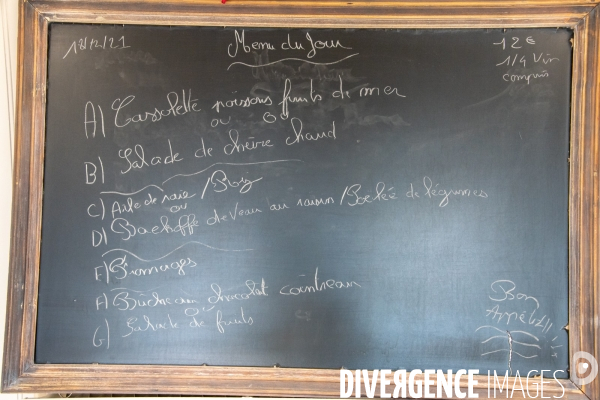 18/12/21
Menu du Jour
12€
1/4 Vin
compris
A) Cassolette poissons fruits de mer
ou
B) Salade de chèvre chaud
C) Aile de raie / Riz
ou
D) de Veau au raisin / Poêlée de légumes
E) Fromages
F) Bûche au chocolat cointreau
ou
G) Salade de fruits
Bon
Appétit
DIVERGENCE IMAGES